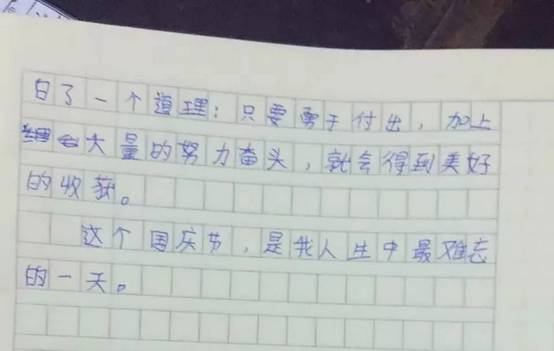 白了一个道理：只要勇于付出，加上
大量的努力奋头，就会得到美好
的收获。
这个国庆节，是我人生中最难忘
的一天。